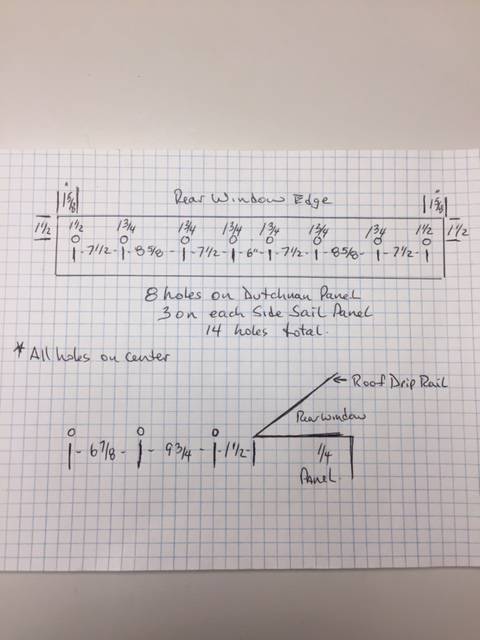 1 5/8 Rear Window Edge 1 5/8
1 1/2 1 1/2 1 3/4 1 3/4 1 3/4 1 3/4 1 3/4 1 3/4 1 1/2 1 1/2
- 7 1/2 - 8 5/8 - 7 1/2 - 6" - 7 1/2 - 8 5/8 - 7 1/2 -
8 holes on Dutchman Panel
3 on each Side Sail Panel
14 holes total.
* All holes on center
← Roof Drip Rail
Rear Window
- 6 7/8 - 9 3/4 - 1 1/2 - 1/4
Panel